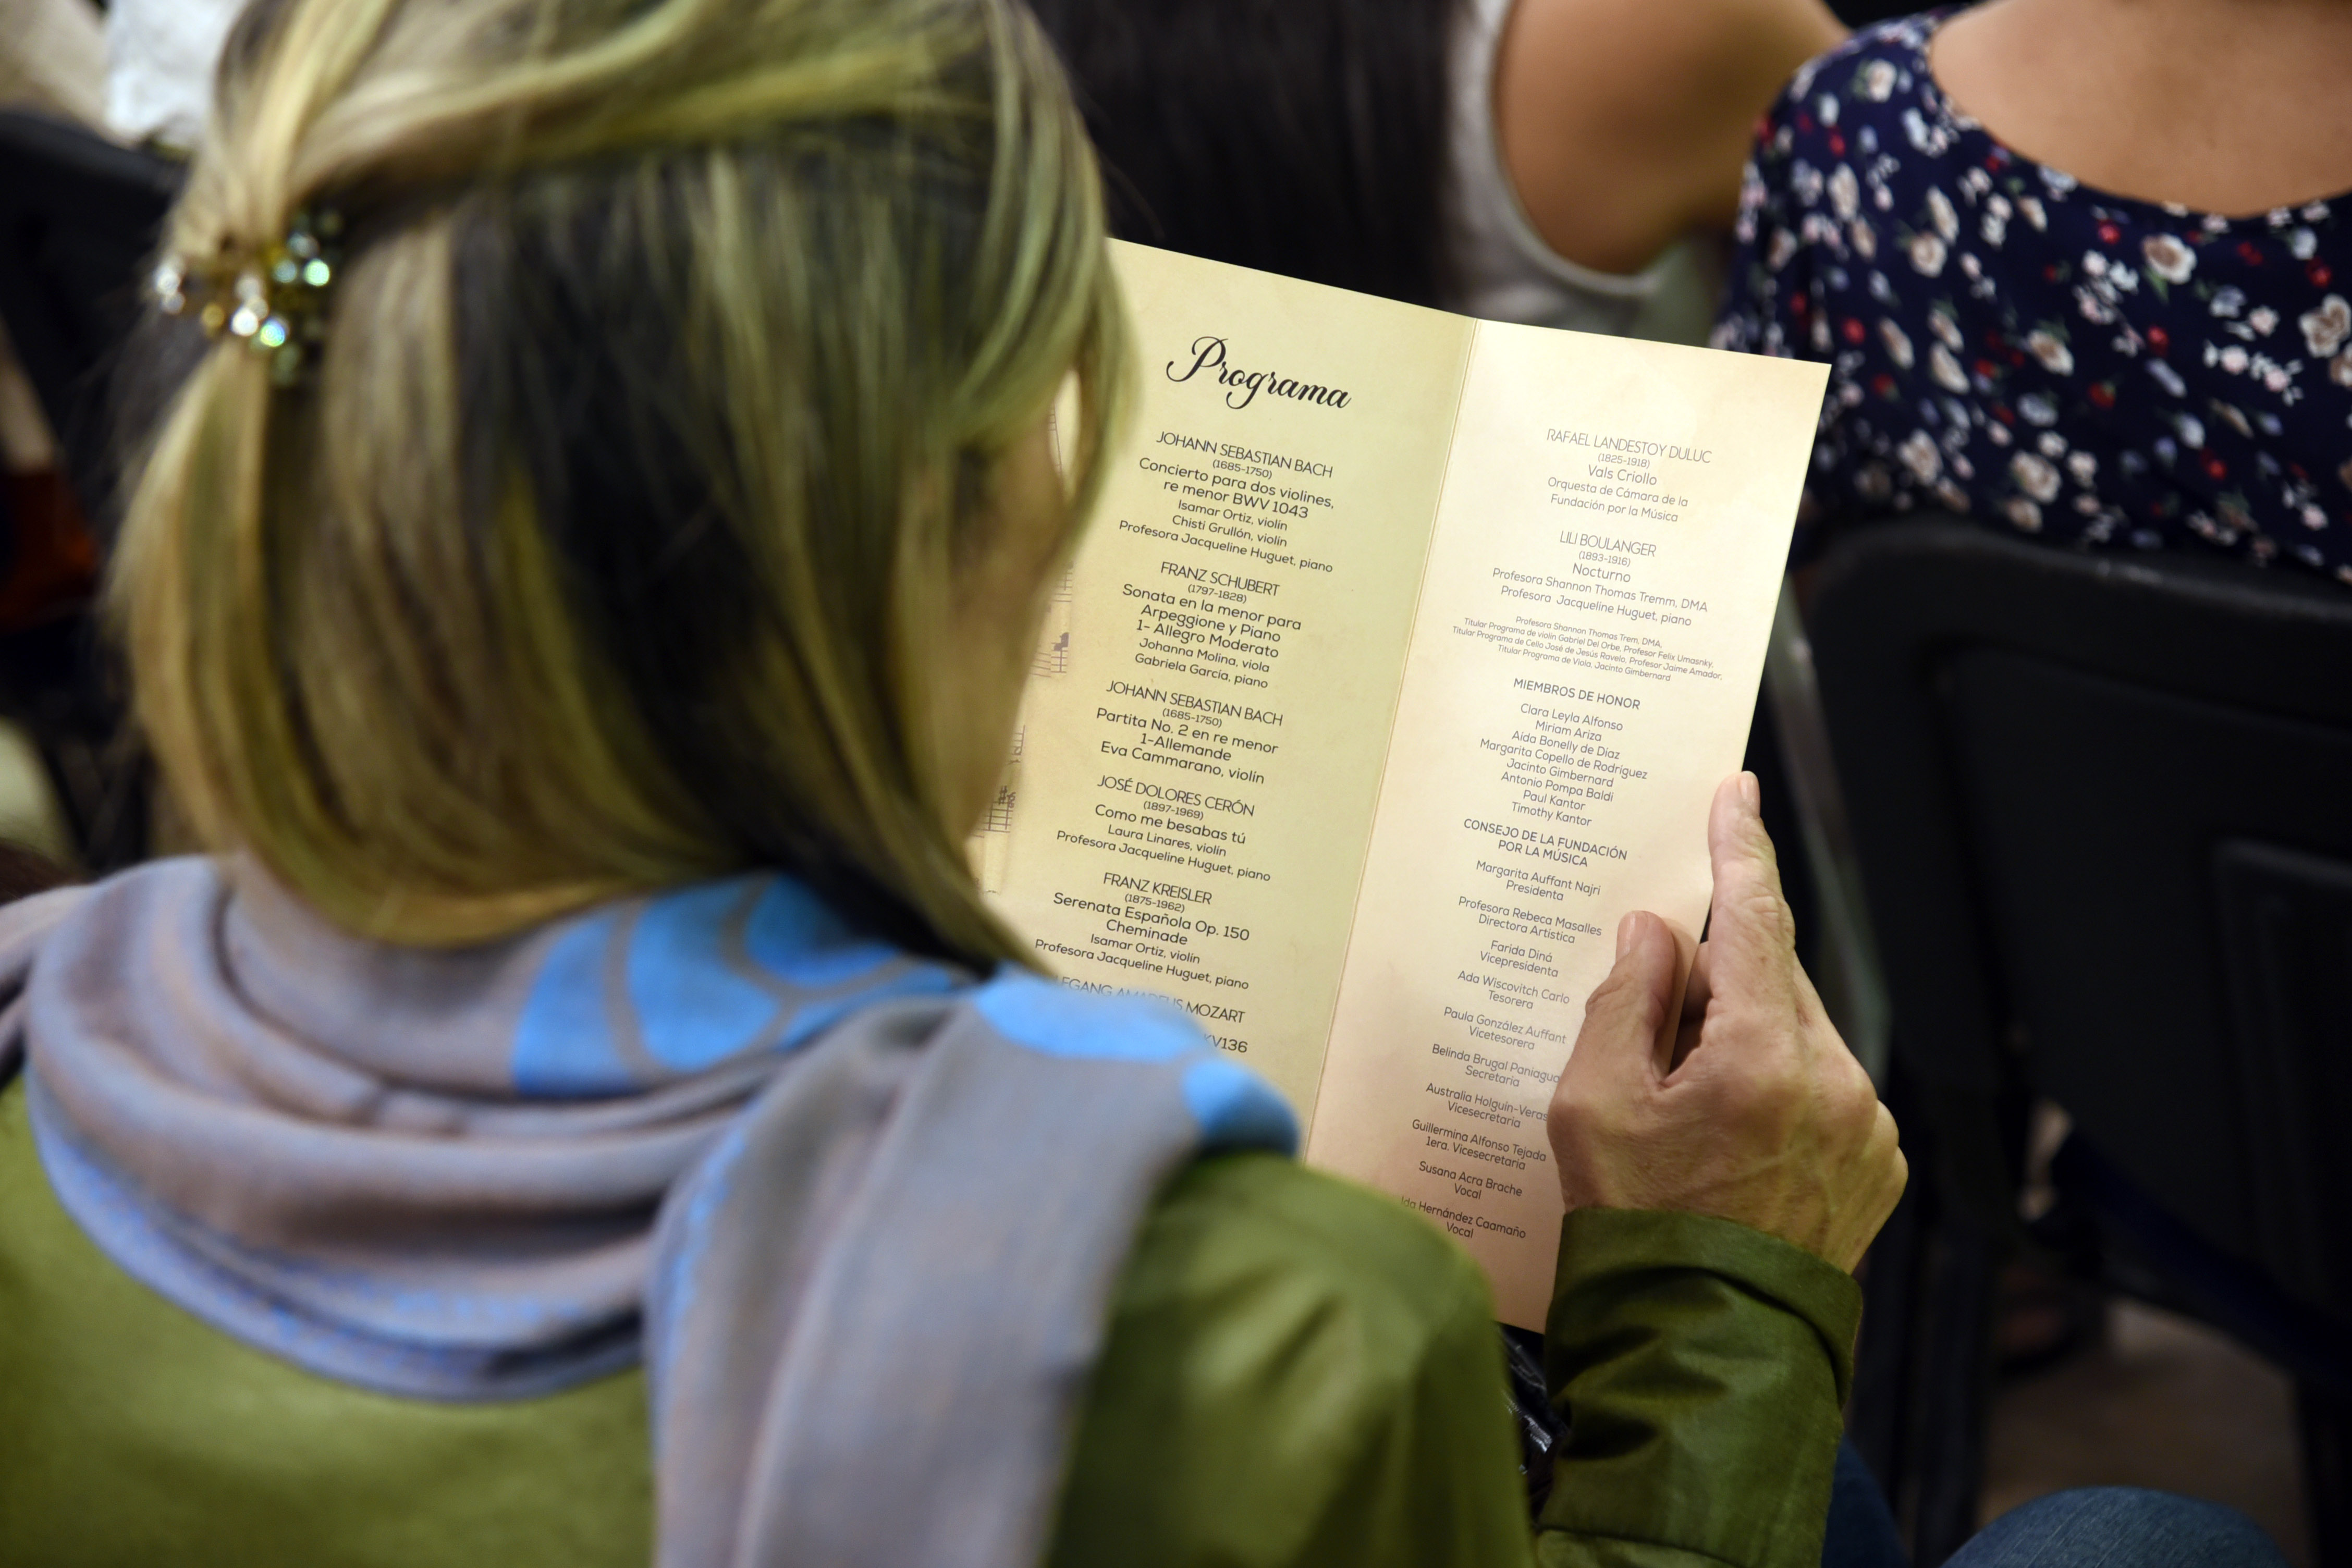 Programa
JOHANN SEBASTIAN BACH
(1685-1750)
Concierto para dos violines,
re menor BWV 1043
Isamar Ortiz, violín
Chisti Grullón, violín
Profesora Jacqueline Huguet, piano
FRANZ SCHUBERT
(1797-1828)
Sonata en la menor para
Arpeggione y Piano
1- Allegro Moderato
Johanna Molina, viola
Gabriela García, piano
JOHANN SEBASTIAN BACH
(1685-1750)
Partita No. 2 en re menor
1-Allemande
Eva Cammarano, violín
JOSÉ DOLORES CERÓN
(1897-1969)
Como me besabas tú
Laura Linares, violín
Profesora Jacqueline Huguet, piano
FRANZ KREISLER
(1875-1962)
Serenata Española Op. 150
Cheminade
Isamar Ortiz, violín
Profesora Jacqueline Huguet, piano
AMADEUS MOZART
KV136
RAFAEL LANDESTOY DULUC
(1825-1918)
Vals Criollo
Orquesta de Cámara de la
Fundación por la Música
LILI BOULANGER
(1893-1916)
Nocturno
Profesora Shannon Thomas Tremm, DMA
Profesora Jacqueline Huguet, piano
Profesora Shannon Thomas Trem, DMA,
Titular Programa de violín Gabriel Del Orbe, Profesor Felix Umasnky,
Titular Programa de Cello José de Jesús Ravelo, Profesor Jaime Amador,
Titular Programa de Viola, Jacinto Gimbernard
MIEMBROS DE HONOR
Clara Leyla Alfonso
Miriam Ariza
Aida Bonelly de Díaz
Margarita Copello de Rodríguez
Jacinto Gimbernard
Antonio Pompa Baldi
Paul Kantor
Timothy Kantor
CONSEJO DE LA FUNDACIÓN
POR LA MÚSICA
Margarita Auffant Najri
Presidenta
Profesora Rebeca Masalles
Directora Artística
Farida Diná
Vicepresidenta
Ada Wiscovitch Carlo
Tesorera
Paula González Auffant
Vicetesorera
Belinda Brugal Paniagua
Secretaria
Australia Holguín-Veras
Vicesecretaria
Guillermina Alfonso Tejada
1era. Vicesecretaria
Susana Acra Brache
Vocal
Hernández Caamaño
Vocal